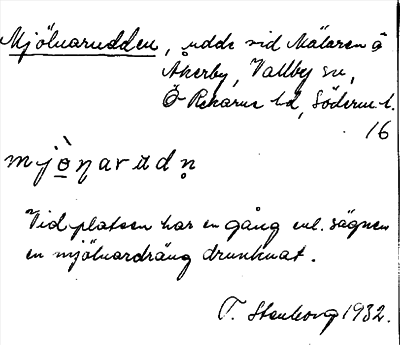 Mjölnarudden, udde vid Mälaren å
Åkerby, Vallby sn,
Ö Rekarne hd, Söderm. l.
16
mjò̲ŋarudn̥
Vid platsen har en gång enl. sägnen
en mjölnardräng drunknat.
T. Stenborg 1932.